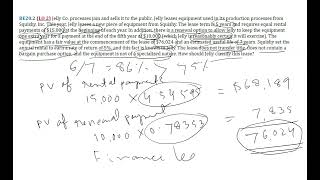 BE20.2 (LO 2) Jelly Co. processes jam and sells it to the public. Jelly leases equipment used in its production processes from
Squishy, Inc. This year, Jelly leases a new piece of equipment from Squishy. The lease term is 5 years and requires equal rental
payments of $15,000 at the beginning of each year. In addition, there is a renewal option to allow Jelly to keep the equipment
one extra year for a payment at the end of the fifth year of $10,000 (which Jelly is reasonably certain it will exercise). The
equipment has a fair value at the commencement of the lease of $76,024 and an estimated useful life of 7 years. Squishy set the
annual rental to earn a rate of return of 5%, and this fact is known to Jelly. The lease does not transfer title, does not contain a
bargain purchase option, and the equipment is not of a specialized nature. How should Jelly classify this lease?
6/7 = 86% > 75%
PV of rental payment
15,000 × 4.54595 = $68,189
PV of renewal payment
10,000 × 0.78353 = 7,835
76,024
Finance lea